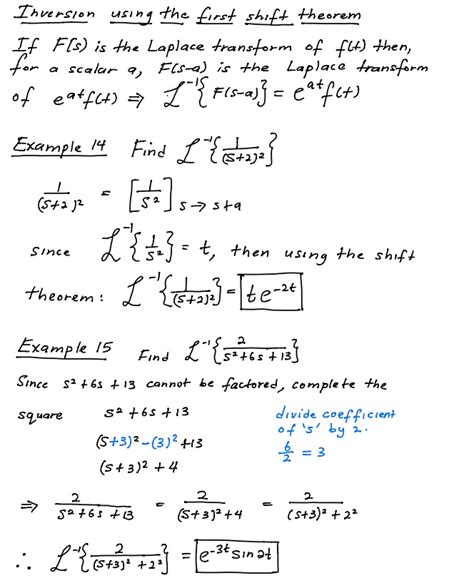 Inversion using the first shift theorem
If F(s) is the Laplace transform of f(t) then,
for a scalar a, F(s-a) is the Laplace transform
of e^{at}f(t) ⇒ ℒ^{-1}{F(s-a)} = e^{at}f(t)
Example 14 Find ℒ^{-1}{1/(s+2)^2}
1/(s+2)^2 = [1/s^2] s → s+a
since ℒ^{-1}{1/s^2} = t, then using the shift
theorem: ℒ^{-1}{1/(s+2)^2} = te^{-2t}
Example 15 Find ℒ^{-1}{2/(s^2+6s+13)}
Since s^2+6s+13 cannot be factored, complete the
square s^2+6s+13 divide coefficient
of 's' by 2.
(s+3)^2-(3)^2+13 6/2 = 3
(s+3)^2+4
⇒ 2/(s^2+6s+13) = 2/((s+3)^2+4) = 2/((s+3)^2+2^2)
∴ ℒ^{-1}{2/((s+3)^2+2^2)} = e^{-3t}sin2t